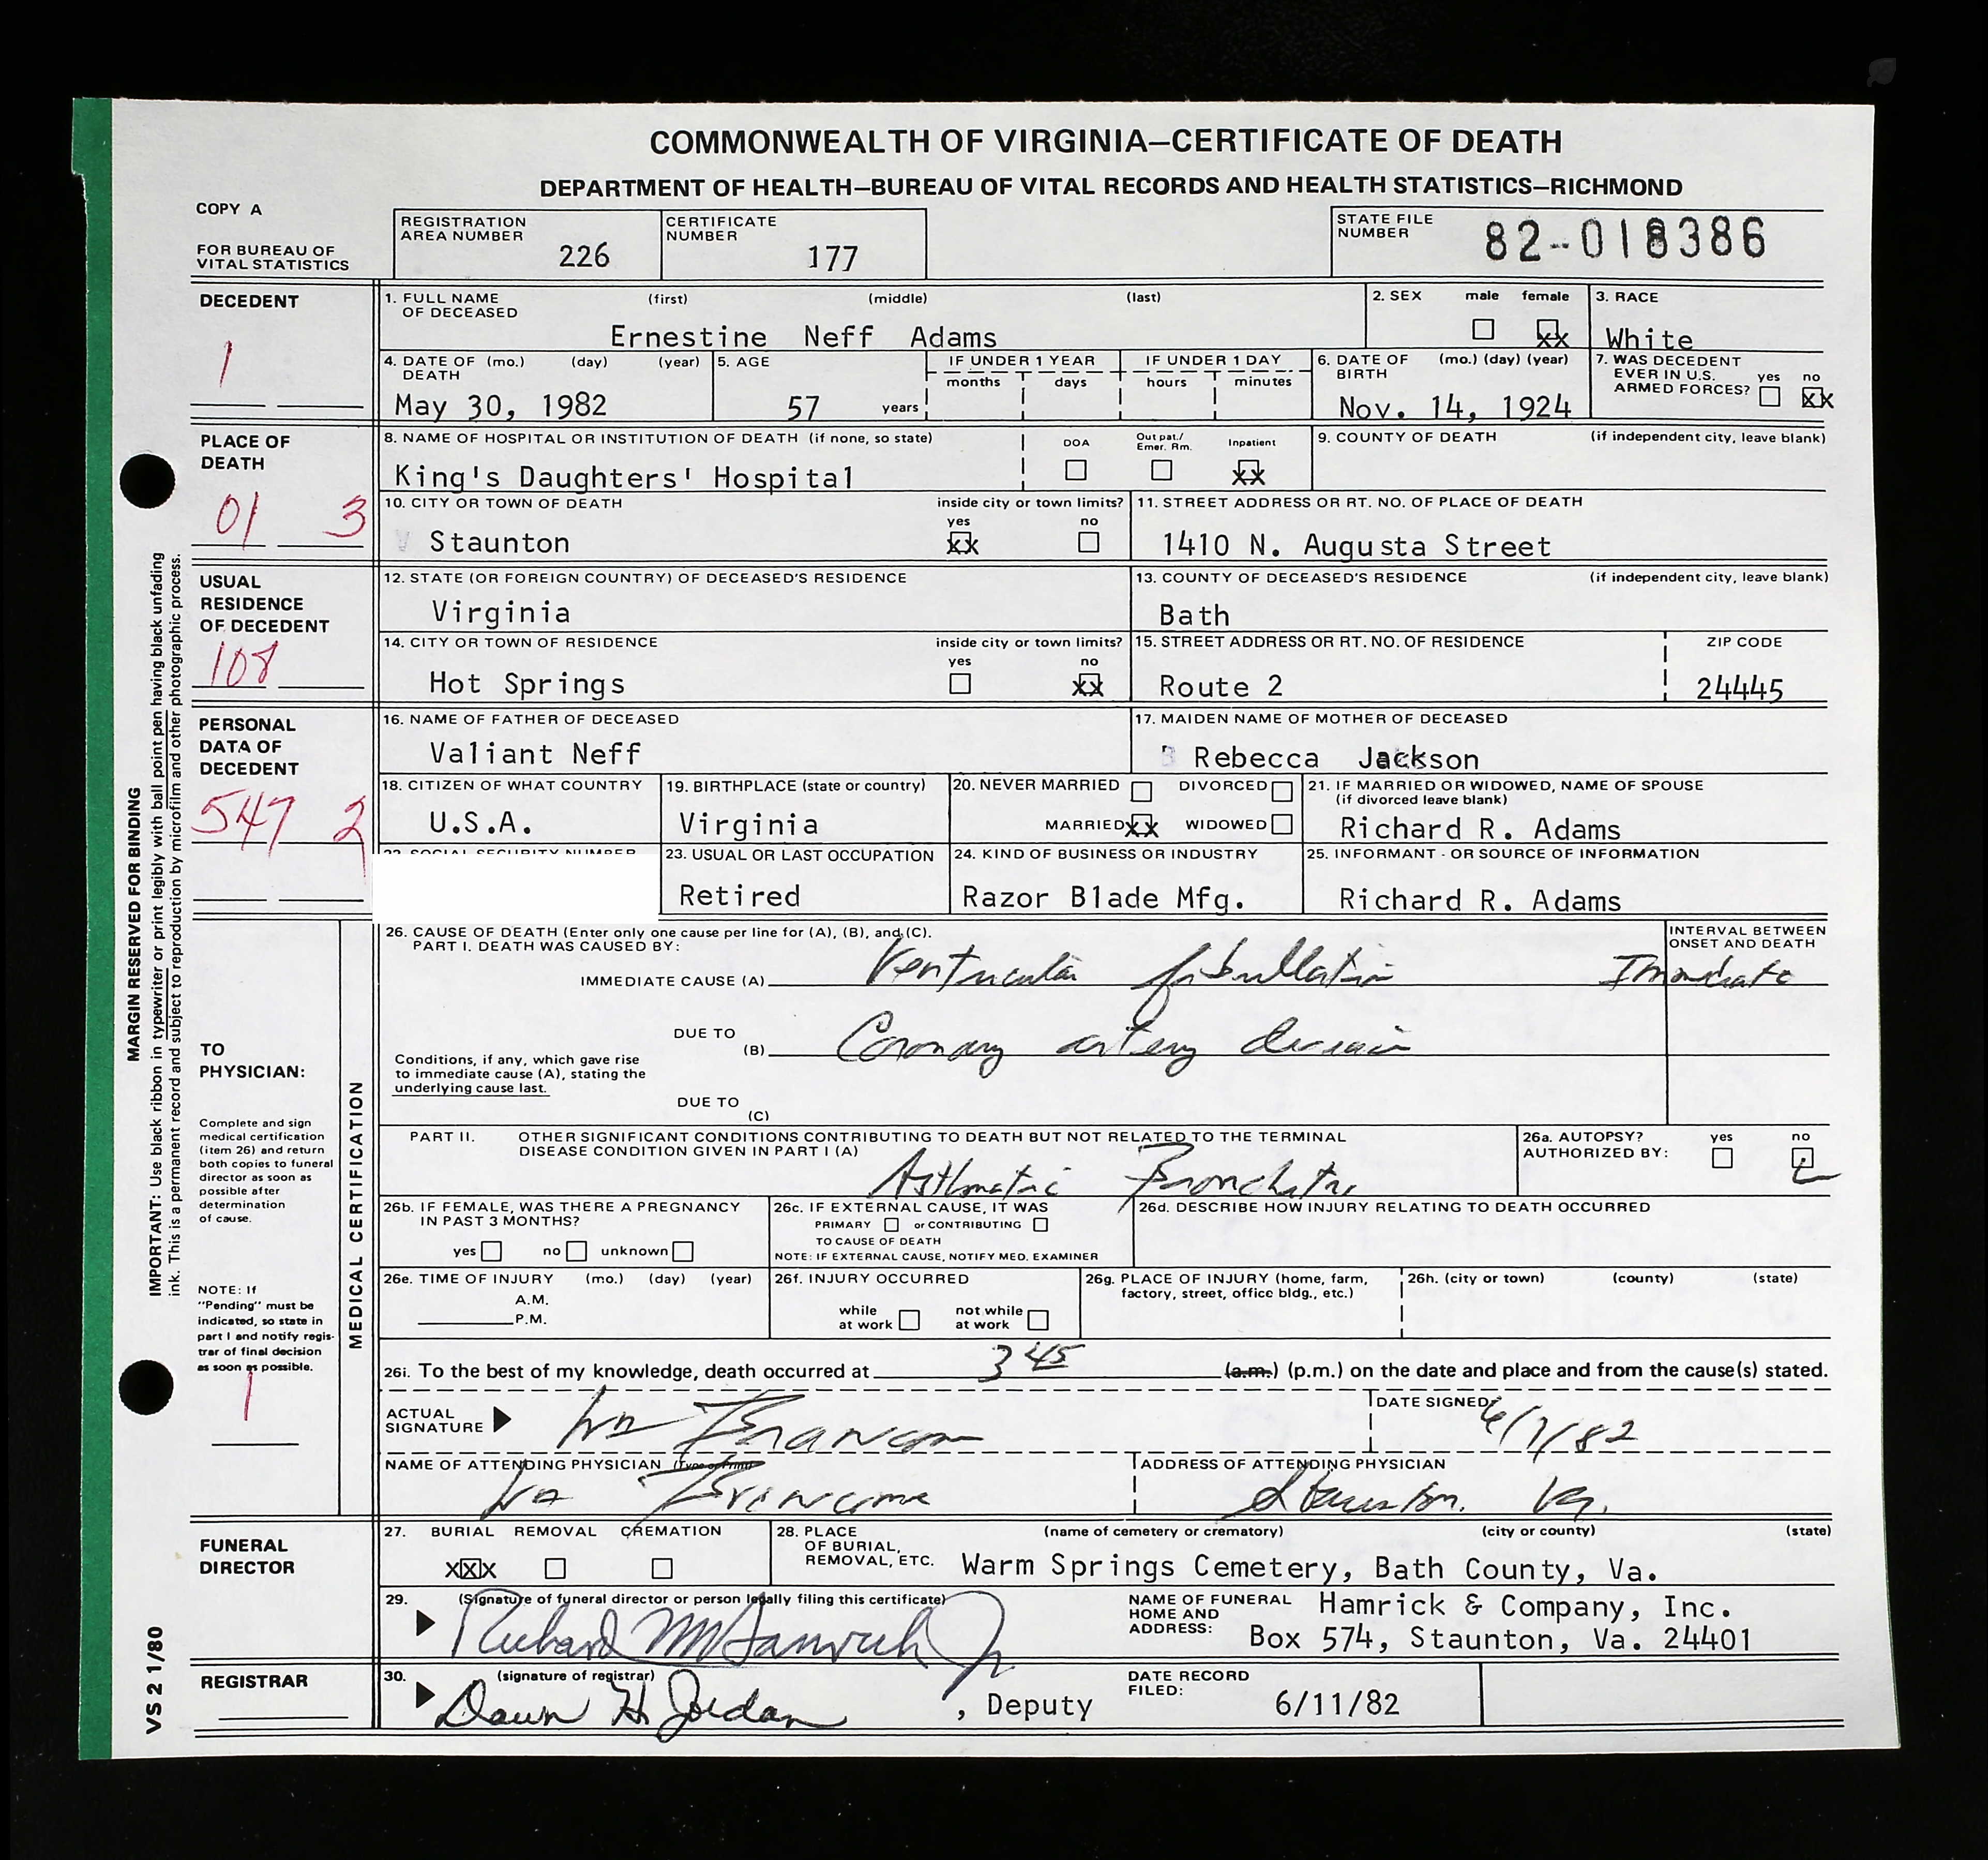 COMMONWEALTH OF VIRGINIA—CERTIFICATE OF DEATH
DEPARTMENT OF HEALTH—BUREAU OF VITAL RECORDS AND HEALTH STATISTICS—RICHMOND
COPY A
FOR BUREAU OF
VITAL STATISTICS
REGISTRATION
AREA NUMBER 226
CERTIFICATE
NUMBER 177
STATE FILE
NUMBER 82-018386
DECEDENT
1
1. FULL NAME (first) (middle) (last)
OF DECEASED
Ernestine Neff Adams
2. SEX male female
xx
3. RACE
White
4. DATE OF (mo.) (day) (year)
DEATH
May 30, 1982
5. AGE
57 years
IF UNDER 1 YEAR
months days
IF UNDER 1 DAY
hours minutes
6. DATE OF (mo.) (day) (year)
BIRTH
Nov. 14, 1924
7. WAS DECEDENT
EVER IN U.S.
ARMED FORCES? yes no
xx
PLACE OF
DEATH
01 3
8. NAME OF HOSPITAL OR INSTITUTION OF DEATH (if none, so state)
King's Daughters' Hospital
DOA
Out pat./
Emer. Rm.
Inpatient
xx
9. COUNTY OF DEATH (if independent city, leave blank)
10. CITY OR TOWN OF DEATH inside city or town limits?
yes no
Staunton xx
11. STREET ADDRESS OR RT. NO. OF PLACE OF DEATH
1410 N. Augusta Street
USUAL
RESIDENCE
OF DECEDENT
108
12. STATE (OR FOREIGN COUNTRY) OF DECEASED'S RESIDENCE
Virginia
13. COUNTY OF DECEASED'S RESIDENCE (if independent city, leave blank)
Bath
14. CITY OR TOWN OF RESIDENCE inside city or town limits?
yes no
Hot Springs xx
15. STREET ADDRESS OR RT. NO. OF RESIDENCE ZIP CODE
Route 2 24445
PERSONAL
DATA OF
DECEDENT
547 2
16. NAME OF FATHER OF DECEASED
Valiant Neff
17. MAIDEN NAME OF MOTHER OF DECEASED
Rebecca Jackson
18. CITIZEN OF WHAT COUNTRY
U.S.A.
19. BIRTHPLACE (state or country)
Virginia
20. NEVER MARRIED DIVORCED
MARRIED xx WIDOWED
21. IF MARRIED OR WIDOWED, NAME OF SPOUSE
(if divorced leave blank)
Richard R. Adams
22. SOCIAL SECURITY NUMBER
23. USUAL OR LAST OCCUPATION
Retired
24. KIND OF BUSINESS OR INDUSTRY
Razor Blade Mfg.
25. INFORMANT - OR SOURCE OF INFORMATION
Richard R. Adams
MARGIN RESERVED FOR BINDING
IMPORTANT: Use black ribbon in typewriter or print legibly with ball point pen having black unfading
ink. This is a permanent record and subject to reproduction by microfilm and other photographic process.
VS 2 1/80
TO
PHYSICIAN:
Complete and sign
medical certification
(item 26) and return
both copies to funeral
director as soon as
possible after
determination
of cause.
NOTE: If
"Pending" must be
indicated, so state in
part I and notify regis-
trar of final decision
as soon as possible.
1
MEDICAL CERTIFICATION
26. CAUSE OF DEATH (Enter only one cause per line for (A), (B), and (C).
PART I. DEATH WAS CAUSED BY:
INTERVAL BETWEEN
ONSET AND DEATH
IMMEDIATE CAUSE (A) Ventricular fibrillation Immediate
DUE TO
(B) Coronary artery disease
Conditions, if any, which gave rise
to immediate cause (A), stating the
underlying cause last.
DUE TO
(C)
PART II. OTHER SIGNIFICANT CONDITIONS CONTRIBUTING TO DEATH BUT NOT RELATED TO THE TERMINAL
DISEASE CONDITION GIVEN IN PART I (A)
Asthmatic Bronchitis
26a. AUTOPSY? yes no
AUTHORIZED BY:
26b. IF FEMALE, WAS THERE A PREGNANCY
IN PAST 3 MONTHS?
yes no unknown
26c. IF EXTERNAL CAUSE, IT WAS
PRIMARY or CONTRIBUTING
TO CAUSE OF DEATH
NOTE: IF EXTERNAL CAUSE, NOTIFY MED. EXAMINER
26d. DESCRIBE HOW INJURY RELATING TO DEATH OCCURRED
26e. TIME OF INJURY (mo.) (day) (year)
A.M.
P.M.
26f. INJURY OCCURRED
while
at work
not while
at work
26g. PLACE OF INJURY (home, farm,
factory, street, office bldg., etc.)
26h. (city or town) (county) (state)
26i. To the best of my knowledge, death occurred at 3 45 (a.m.) (p.m.) on the date and place and from the cause(s) stated.
ACTUAL
SIGNATURE
DATE SIGNED: 6/7/82
NAME OF ATTENDING PHYSICIAN (Type or Print)
ADDRESS OF ATTENDING PHYSICIAN
Staunton. Va.
FUNERAL
DIRECTOR
27. BURIAL REMOVAL CREMATION
xxx
28. PLACE (name of cemetery or crematory) (city or county) (state)
OF BURIAL,
REMOVAL, ETC.
Warm Springs Cemetery, Bath County, Va.
29. (Signature of funeral director or person legally filing this certificate)
Richard M Hamrick Jr
NAME OF FUNERAL
HOME AND
ADDRESS:
Hamrick & Company, Inc.
Box 574, Staunton, Va. 24401
REGISTRAR
30. (signature of registrar)
Dawn H. Jordan, Deputy
DATE RECORD
FILED:
6/11/82